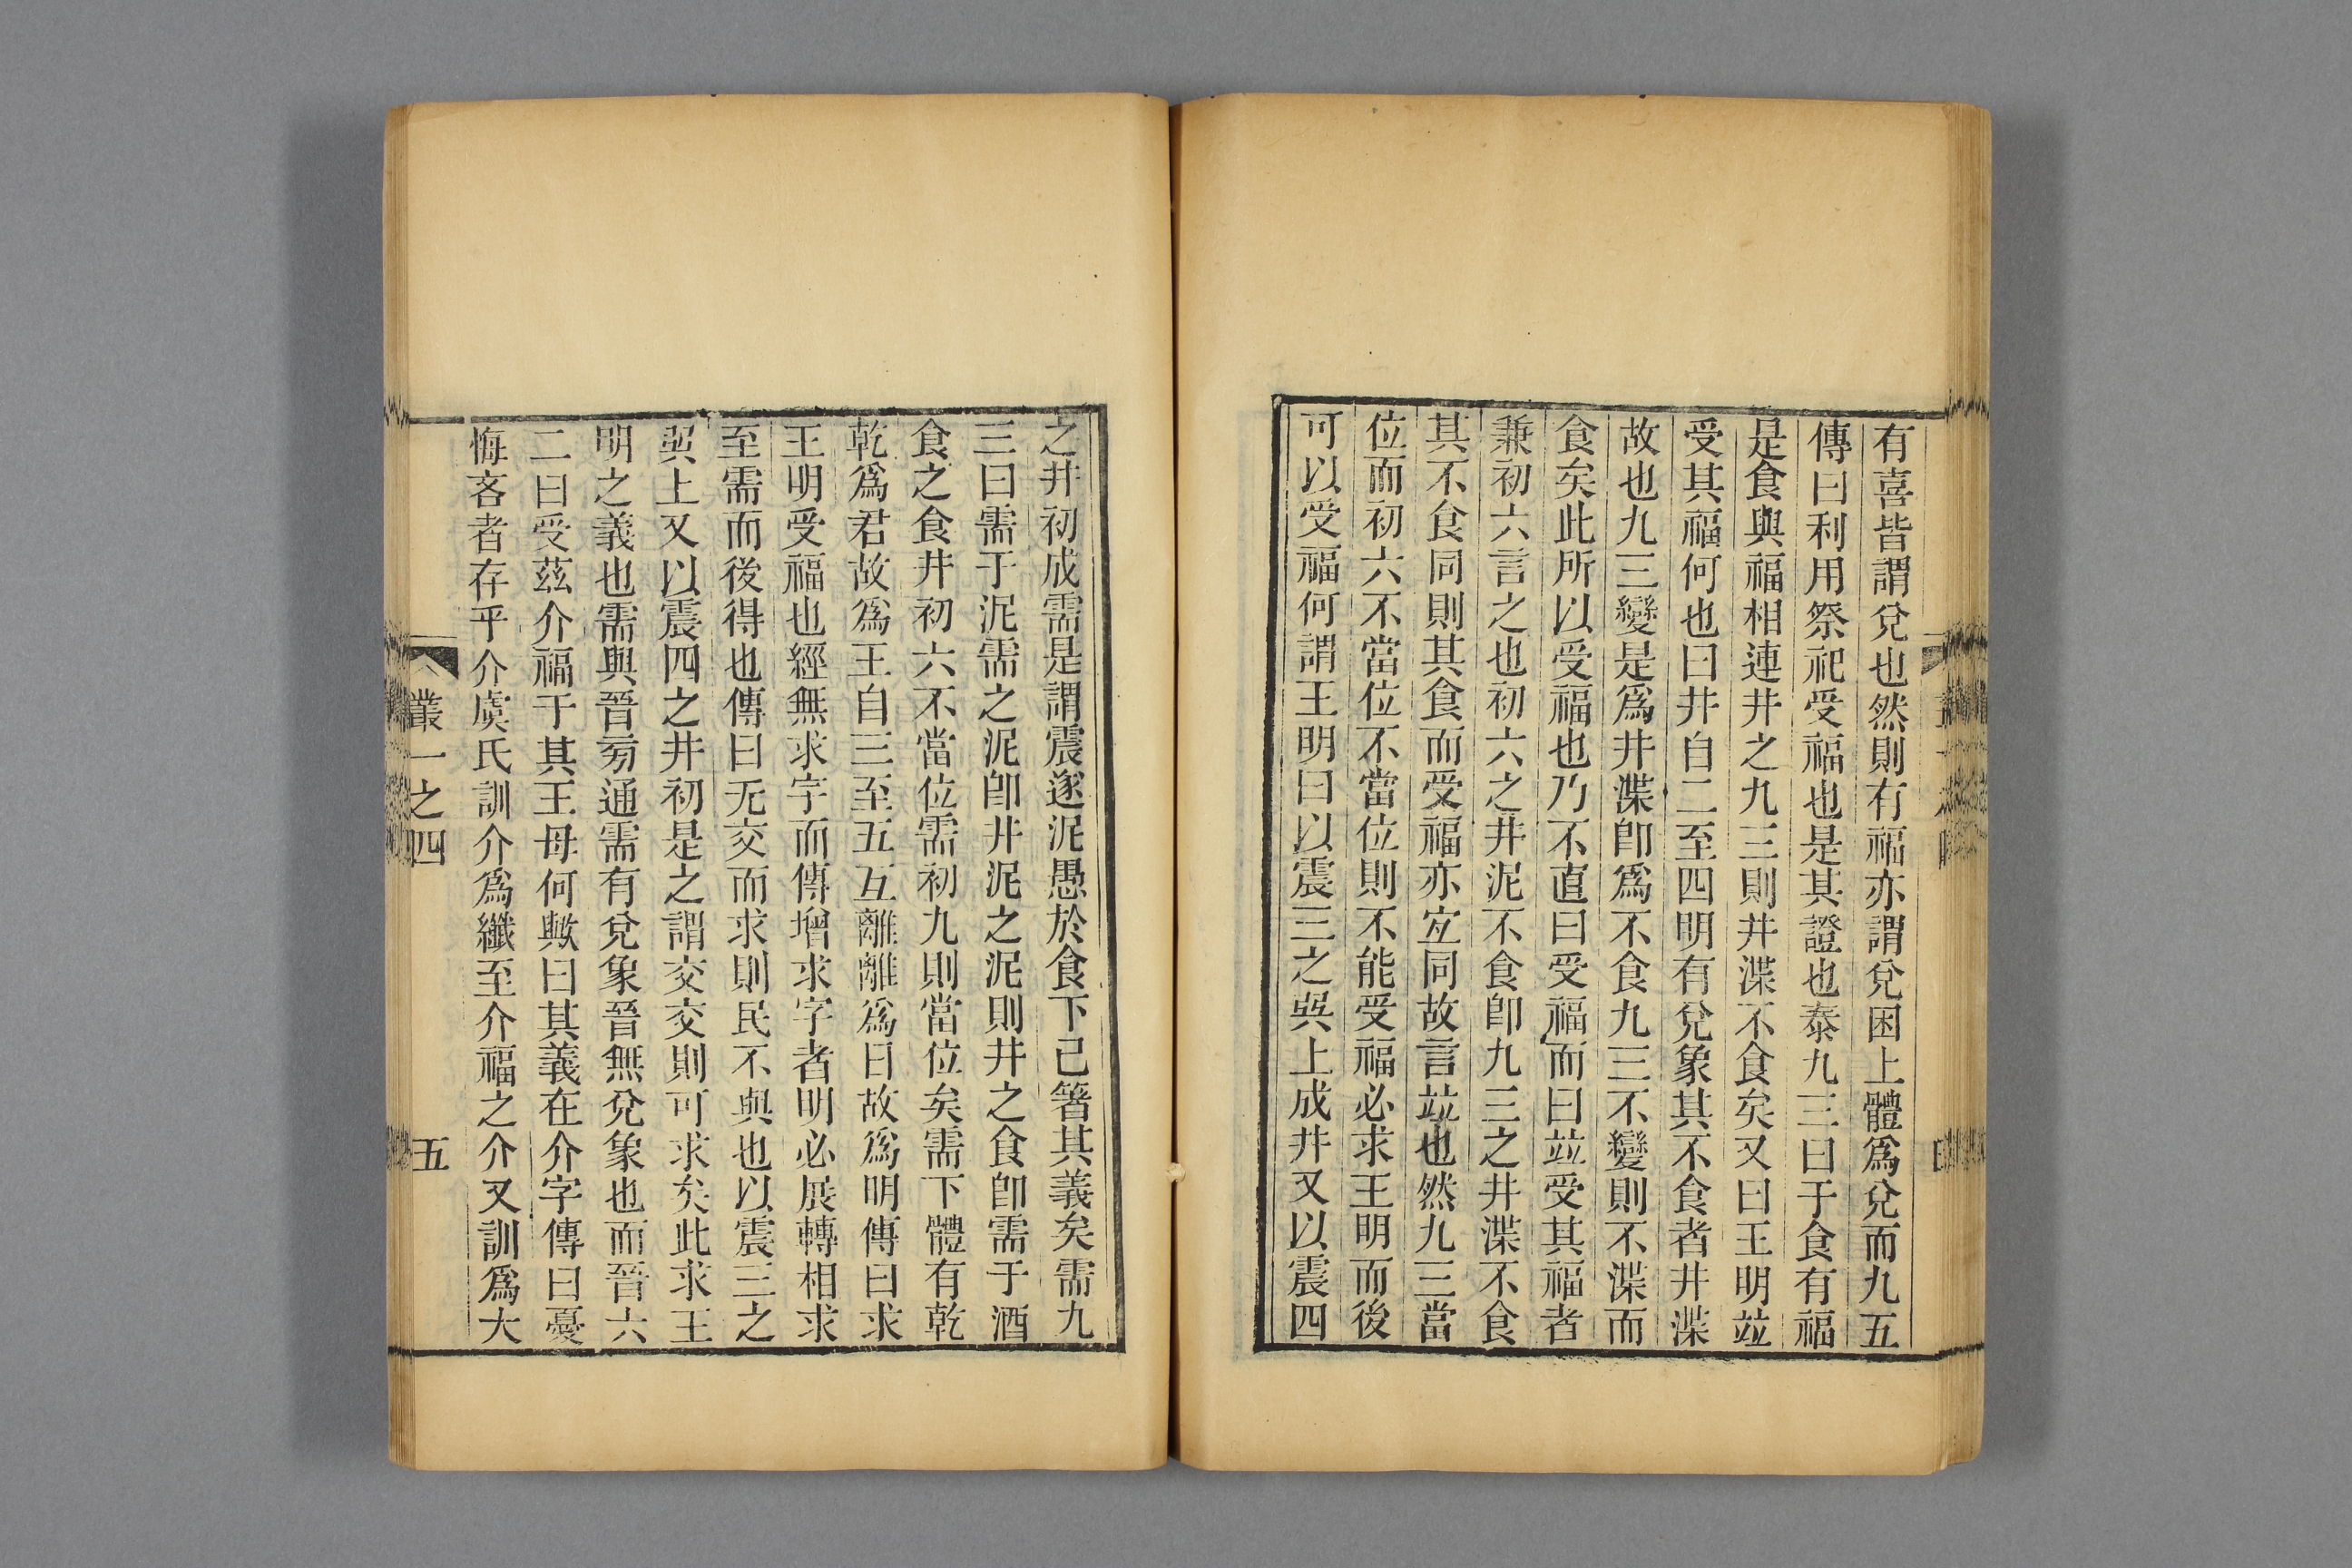 有喜皆謂兌也然則有福亦謂兌困上體爲兌而九五
傳曰利用祭祀受福也是其證也泰九三曰于食有福
是食與福相連井之九三則井渫不食矣又曰王明竝
受其福何也曰井自二至四明有兌象其不食者井渫
故也九三變是爲井渫卽爲不食九三不變則不渫而
食矣此所以受福也乃不直曰受福而曰竝受其福者
兼初六言之也初六之井泥不食卽九三之井渫不食
其不食同則其食而受福亦宐同故言竝也然九三當
位而初六不當位不當位則不能受福必求王明而後
可以受福何謂王明曰以震三之巽上成井又以震四
之井初成需是謂震遂泥愚於食下已箸其義矣需九
三曰需于泥需之泥卽井泥之泥則井之食卽需于酒
食之食井初六不當位需初九則當位矣需下體有乾
乾爲君故爲王自三至五互離離爲日故爲明傳曰求
王明受福也經無求字而傳增求字者明必展轉相求
至需而後得也傳曰无交而求則民不與也以震三之
巽上又以震四之井初是之謂交交則可求矣此求王
明之義也需與晉旁通需有兌象晉無兌象也而晉六
二曰受茲介福于其王母何歟曰其義在介字傳曰憂
悔吝者存乎介虞氏訓介爲纖至介福之介又訓爲大
叢一之四
五